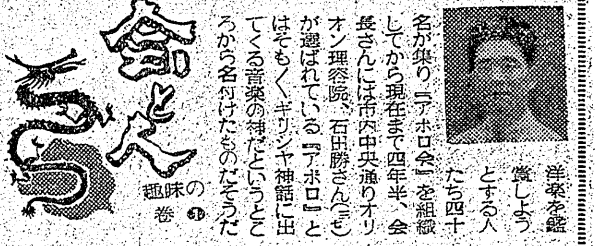 会と人
趣味の
巻
洋楽を鑑
賞しよう
とする人
たち四十
名が集り『アポロ会』を組織
してから現在まで四年半、会
長さんには市内中央通りオリ
オン理容院、石出勝さん
が選ばれている『アポロ』と
はそも〱ギリシヤ神話に出
てくる音楽の神だというとこ
ろから名付けたものだそうだ